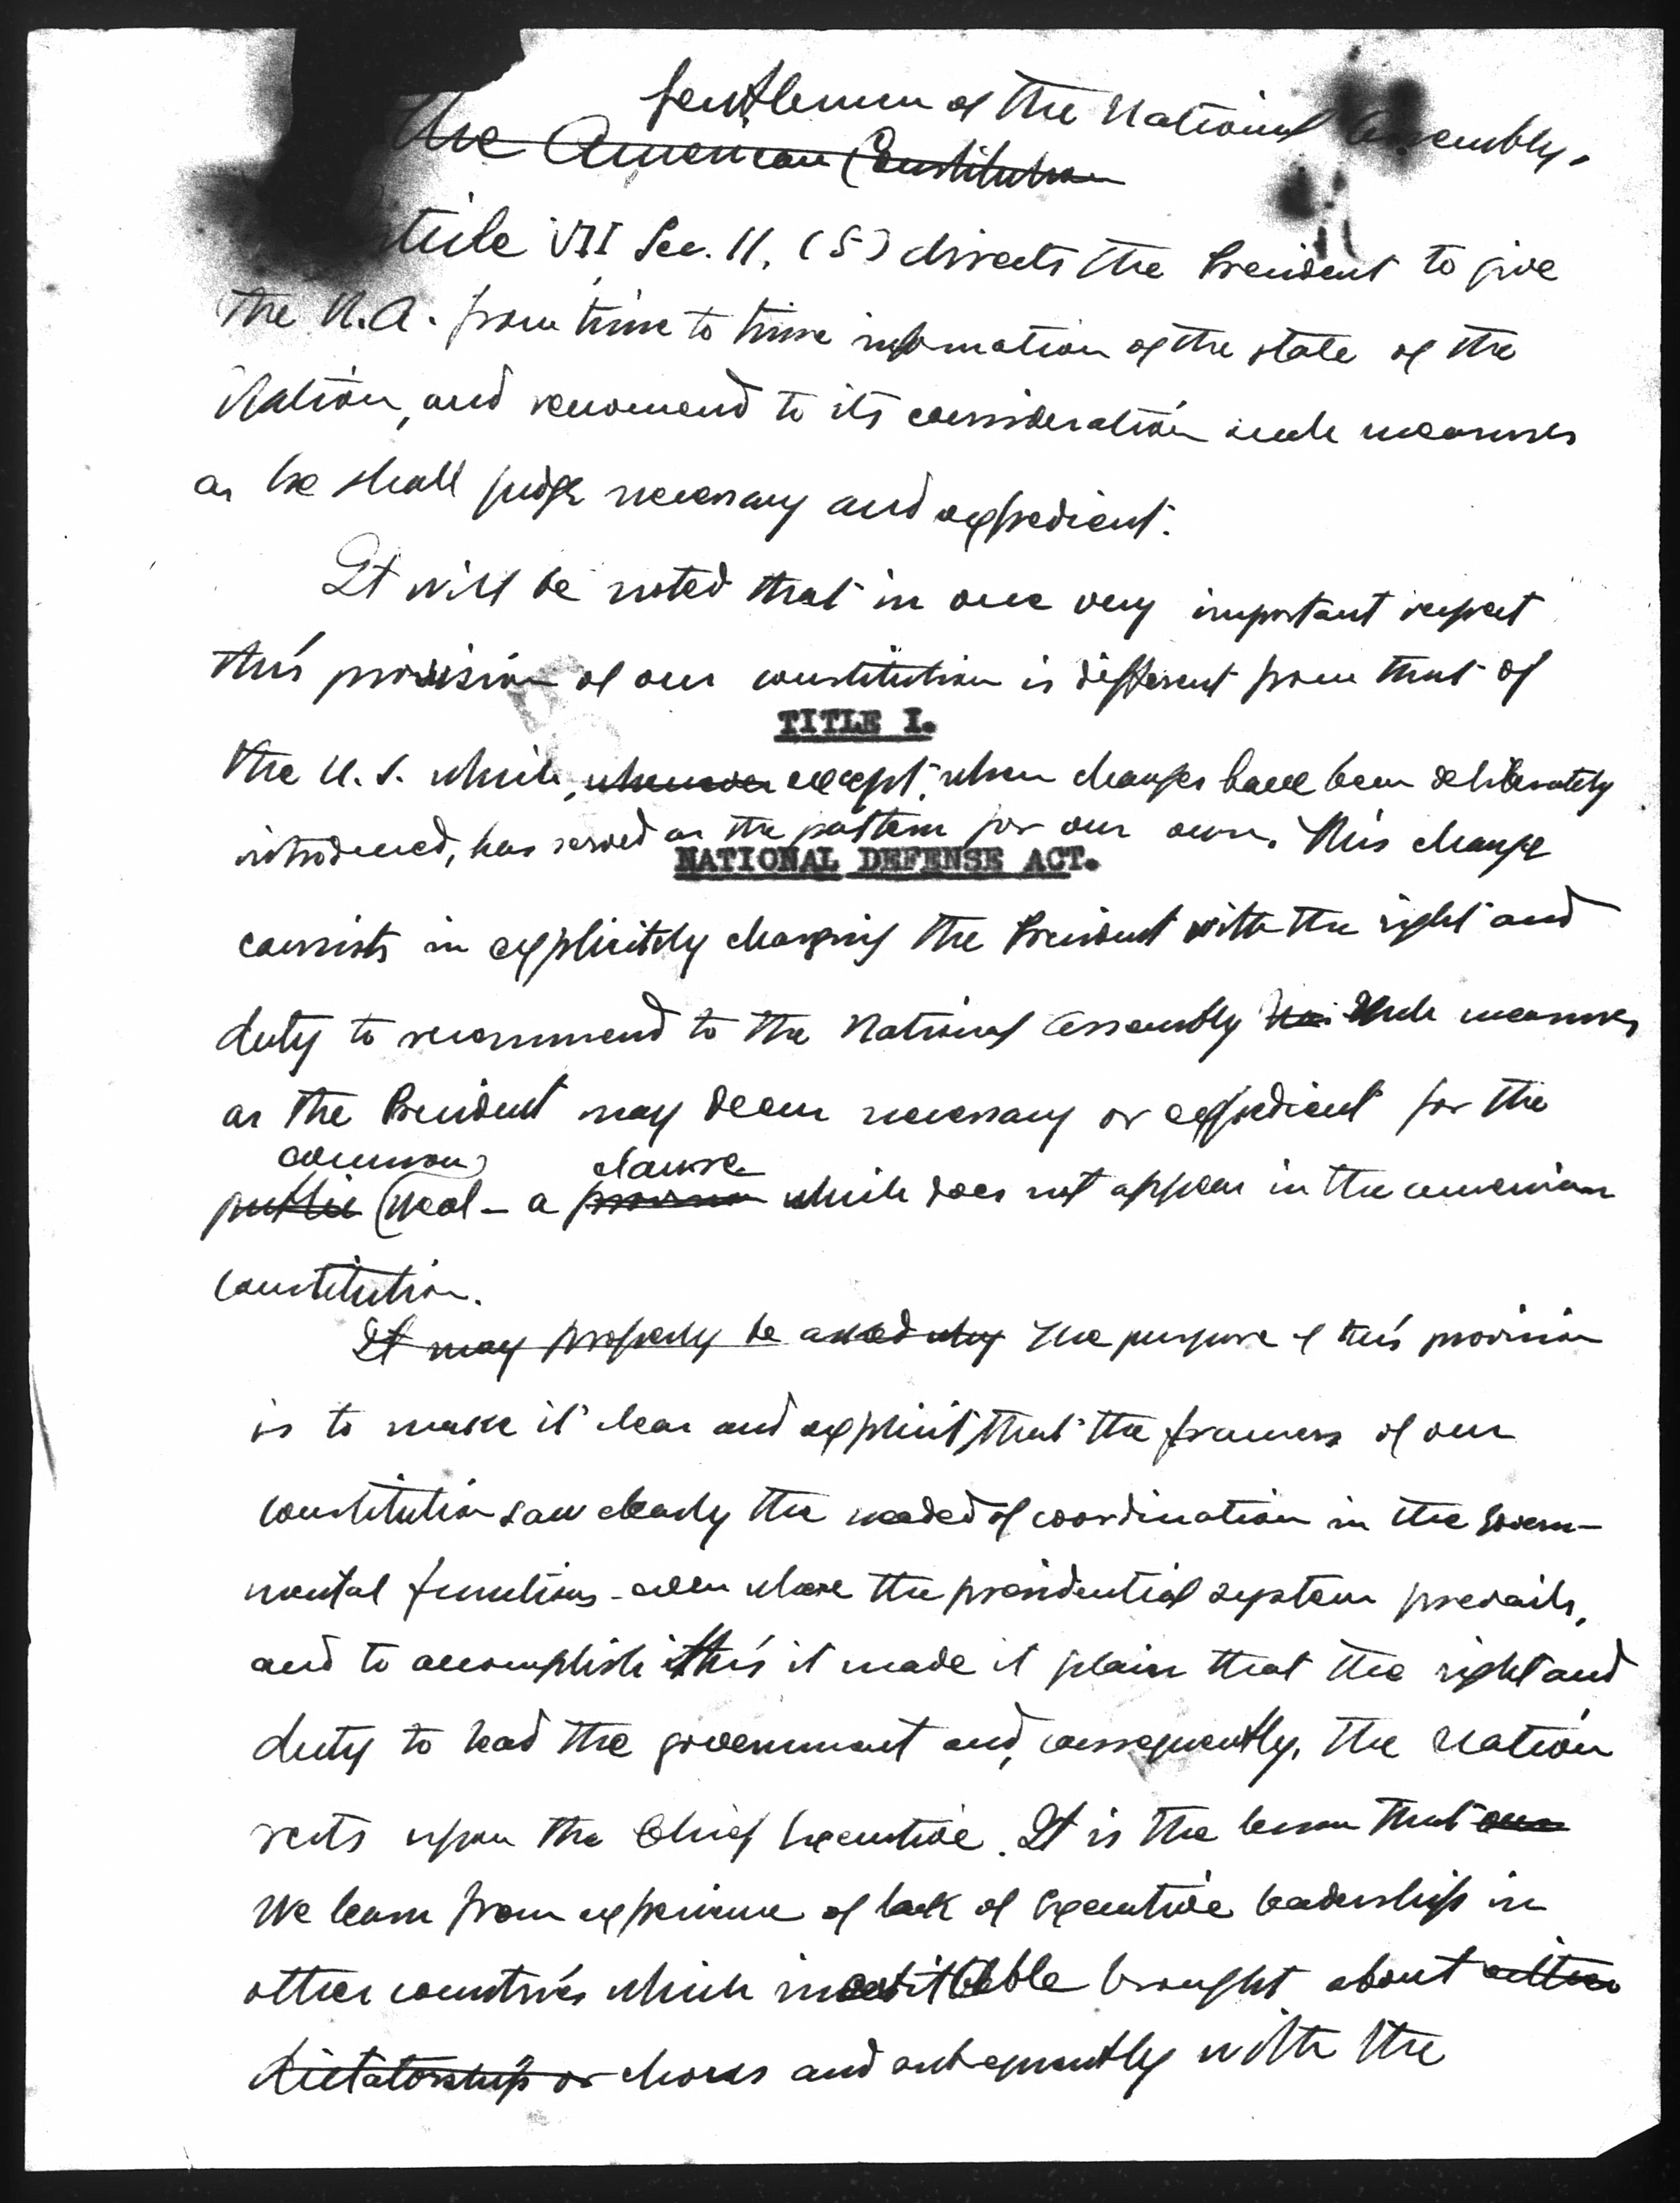 Gentlemen of the National Assembly,
The American Constitution
Article VII Sec. 11, (5) directs the President to give
the N.A. from time to time information of the state of the
Nation, and recomend to its consideration such measures
as he shall judge necessary and expedient.
It will be noted that in one very important respect
this provision of our constitution is different from that of
TITLE I.
the U.S. which, whenever except, when changes have been deliberately
introduced, has served as the pattern for our own. This change
NATIONAL DEFENSE ACT.
consists in explicitely charging the President with the right and
duty to recommend to the National Assembly such measures
as the President may deem necessary or expedient for the
common clause
public (weal - a provision which does not appear in the american
constitution.
It may properly be asked why The purpose of this provision
is to make it clear and explicit, that the framers of our
constitution saw clearly the needed of coordination in the govern-
mental functions - even where the presidential system prevails,
and to accomplish this it made it plain that the right and
duty to lead the government and, consequently, the Nation
rests upon the Chief Executive. It is the lesson that our
We learn from experience of lack of Executive leadership in
other countries which inevitable brought about either
dictatorship or choas and subsequently with the